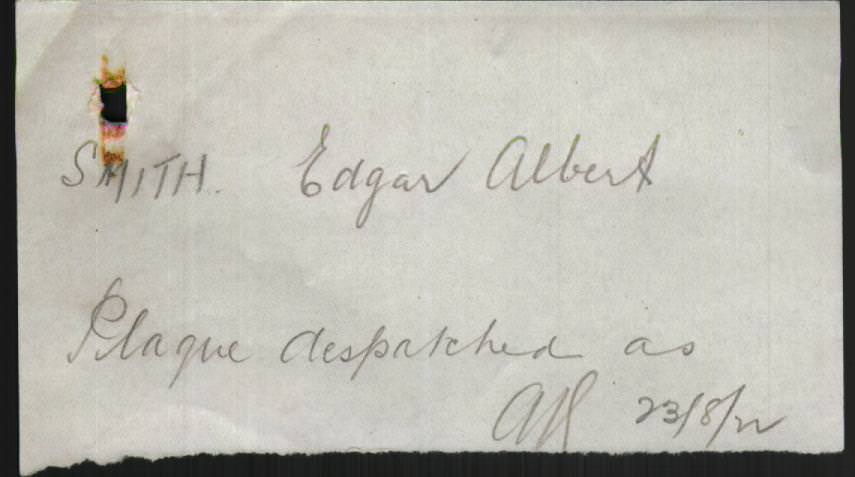 SMITH. Edgar Albert
Plaque despatched as
23/8/22